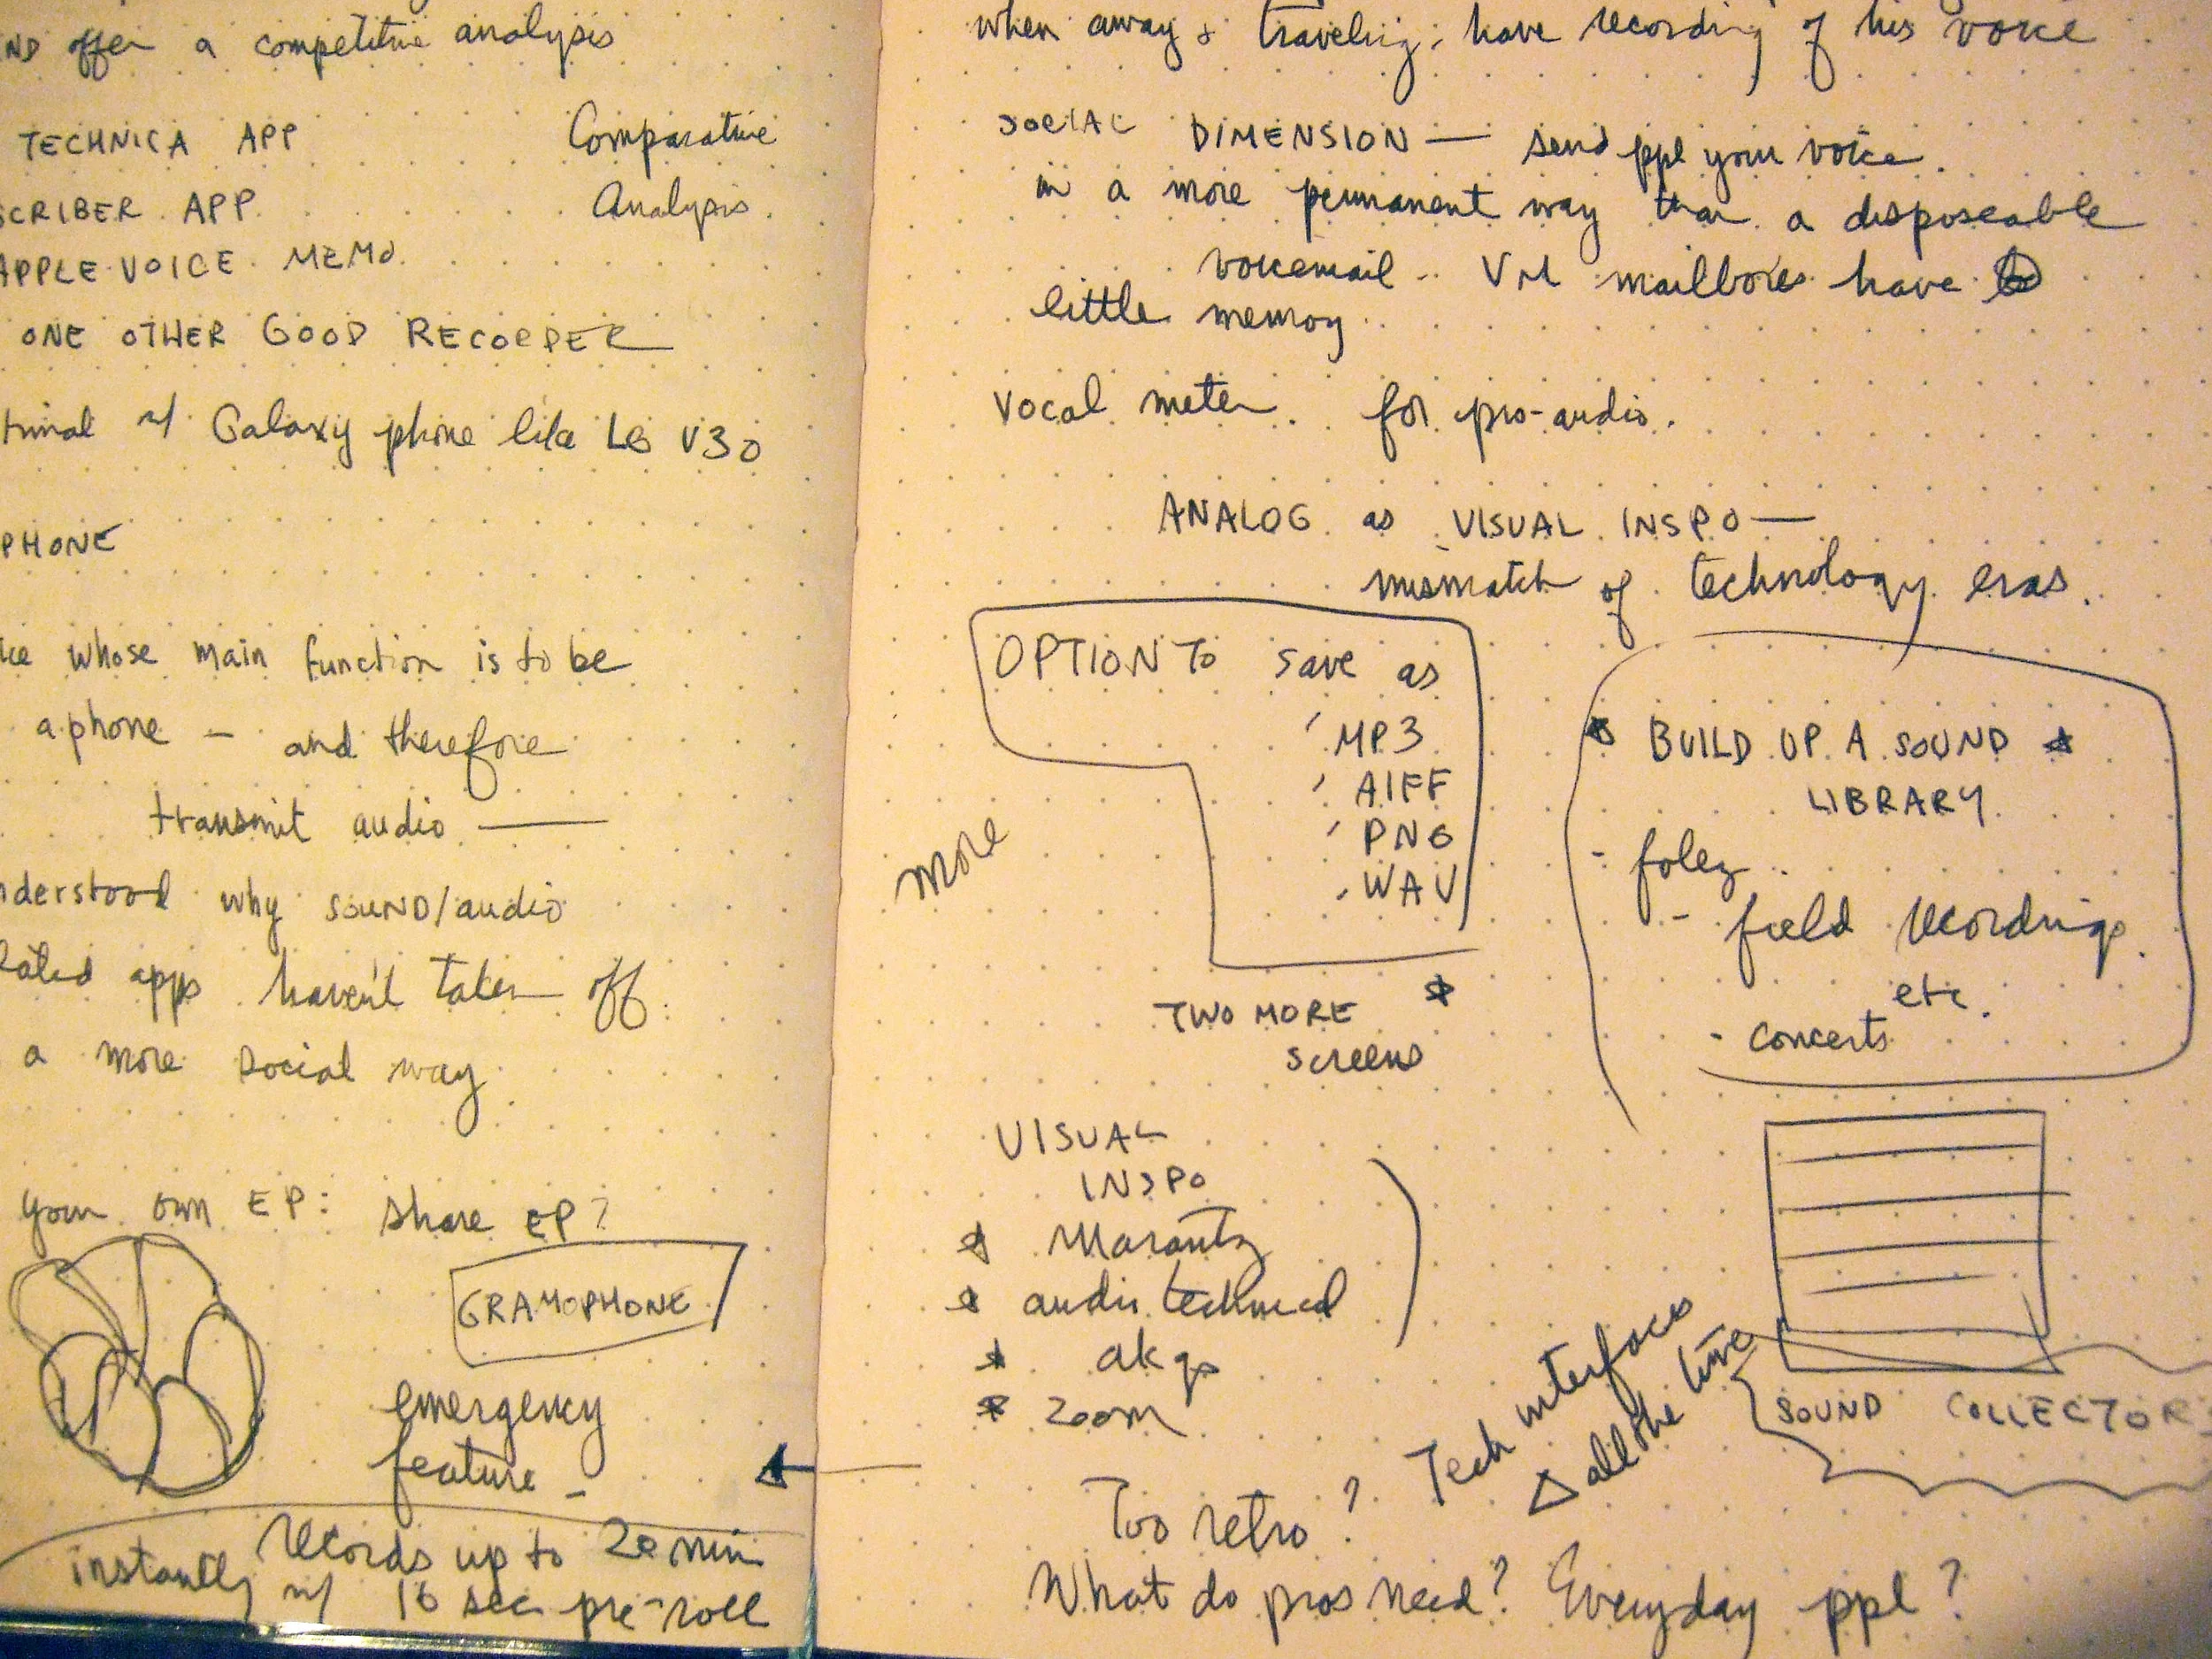 AND offer a competitive analysis
TECHNICA APP
Comparative
Analysis.
SCRIBER APP
APPLE VOICE MEMO.
ONE OTHER GOOD RECORDER
w/ Galaxy phone like LG V30
PHONE
whose main function is to be
a phone – and therefore
transmit audio —
understood why SOUND/audio
apps haven't taken off
a more social way
your own EP: share EP?
GRAMOPHONE
emergency
feature –
instantly records up to 20 min
w/ 16 sec pre-roll
when away & traveling; have recording of his voice
SOCIAL DIMENSION — send ppl your voice
in a more permanent way than a disposeable
voicemail. VM mailboxes have
little memory
vocal meter. for pro-audio.
ANALOG as VISUAL INSPO —
mismatch of technology eras.
OPTION To save as
MP3
AIFF
PNG
WAV
more
BUILD UP A SOUND
LIBRARY
- foley
- field recordings
etc.
- concerts
TWO MORE
screens
VISUAL
INSPO
Marantz
audio technica
akgs
zoom
SOUND COLLECTOR
Tech interfaces
Δ all the time
Too retro?
What do pros need? Everyday ppl?